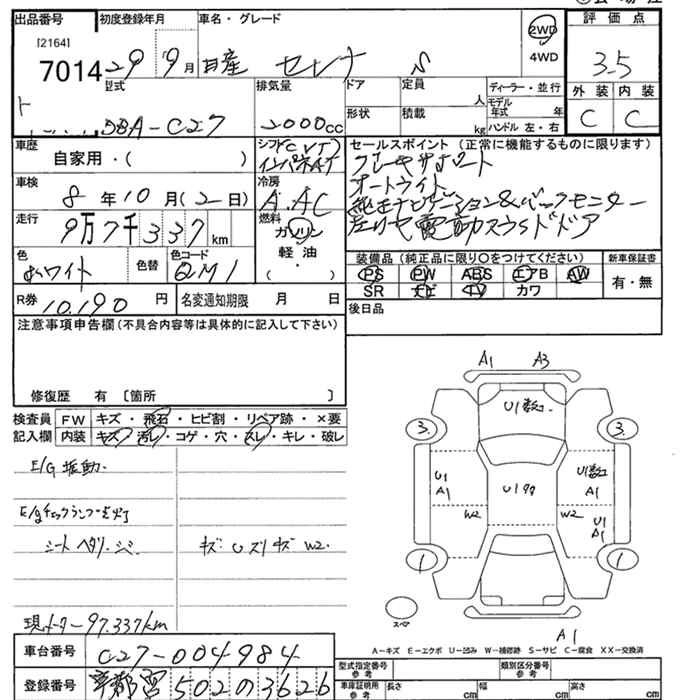 出品番号 初度登録年月 車名・グレード 評価点
[2164]
7014 29 9月 日産 セレナ S 2WD 4WD 3.5
型式 排気量 ドア 定員 人 ディーラー・並行 外装 内装
DBA-C27 2000cc 形状 積載 kg モデル年式 年 ハンドル 左・右 C C
車歴 シフト CVT セールスポイント (正常に機能するものに限ります)
自家用・( ) インパネAT ブレーキサポート
車検 冷房 オートライト
8年10月(2日) A.AC 純正ナビゲーション&バックモニター
走行 燃料 左リヤ電動スライドドア
9万7千337km ガソリン
軽油
( ・ )
色 色替 色コード 装備品 (純正品に限り〇をつけてください) 新車保証書
ホワイト QM1 PS PW ABS エアB AW 有・無
SR ナビ TV カワ
R券 10,190円 名変通知期限 月 日 後日品
注意事項申告欄(不具合内容等は具体的に記入して下さい)
修復歴 有 [箇所 ]
A1 A3
U1数コ
検査員 FW キズ・飛石・ヒビ割・リペア跡・×要
記入欄 内装 キズ・汚レ・コゲ・穴・スレ・キレ・破レ
3 3
E/G振動.
U1 A1 U1数コ A1
E/gチェックランプ点灯 W2 W2 U1 A1
シート ヘタリ.シミ. キズ:Uズリキズ W2.
1 1
現メーター97.337km
スペア
A1
A-キズ E-エクボ U-凹み W-補修跡 S-サビ C-腐食 XX-交換済
車台番号 C27-004984
型式指定番号 参考 類別区分番号 参考
登録番号 宇都宮502の3626
車庫証明用 参考 長さ cm 幅 cm 高さ cm